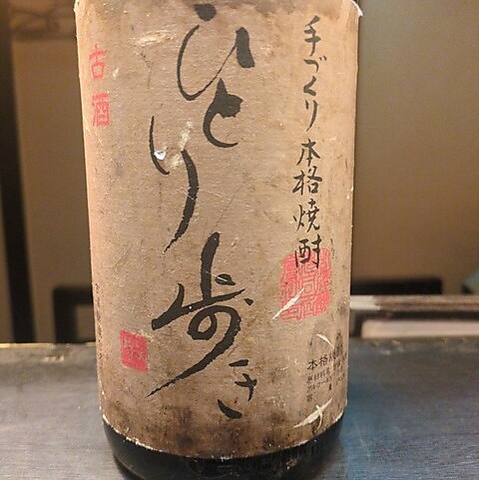 手づくり本格焼酎
ひとり歩き
古酒
本格焼酎